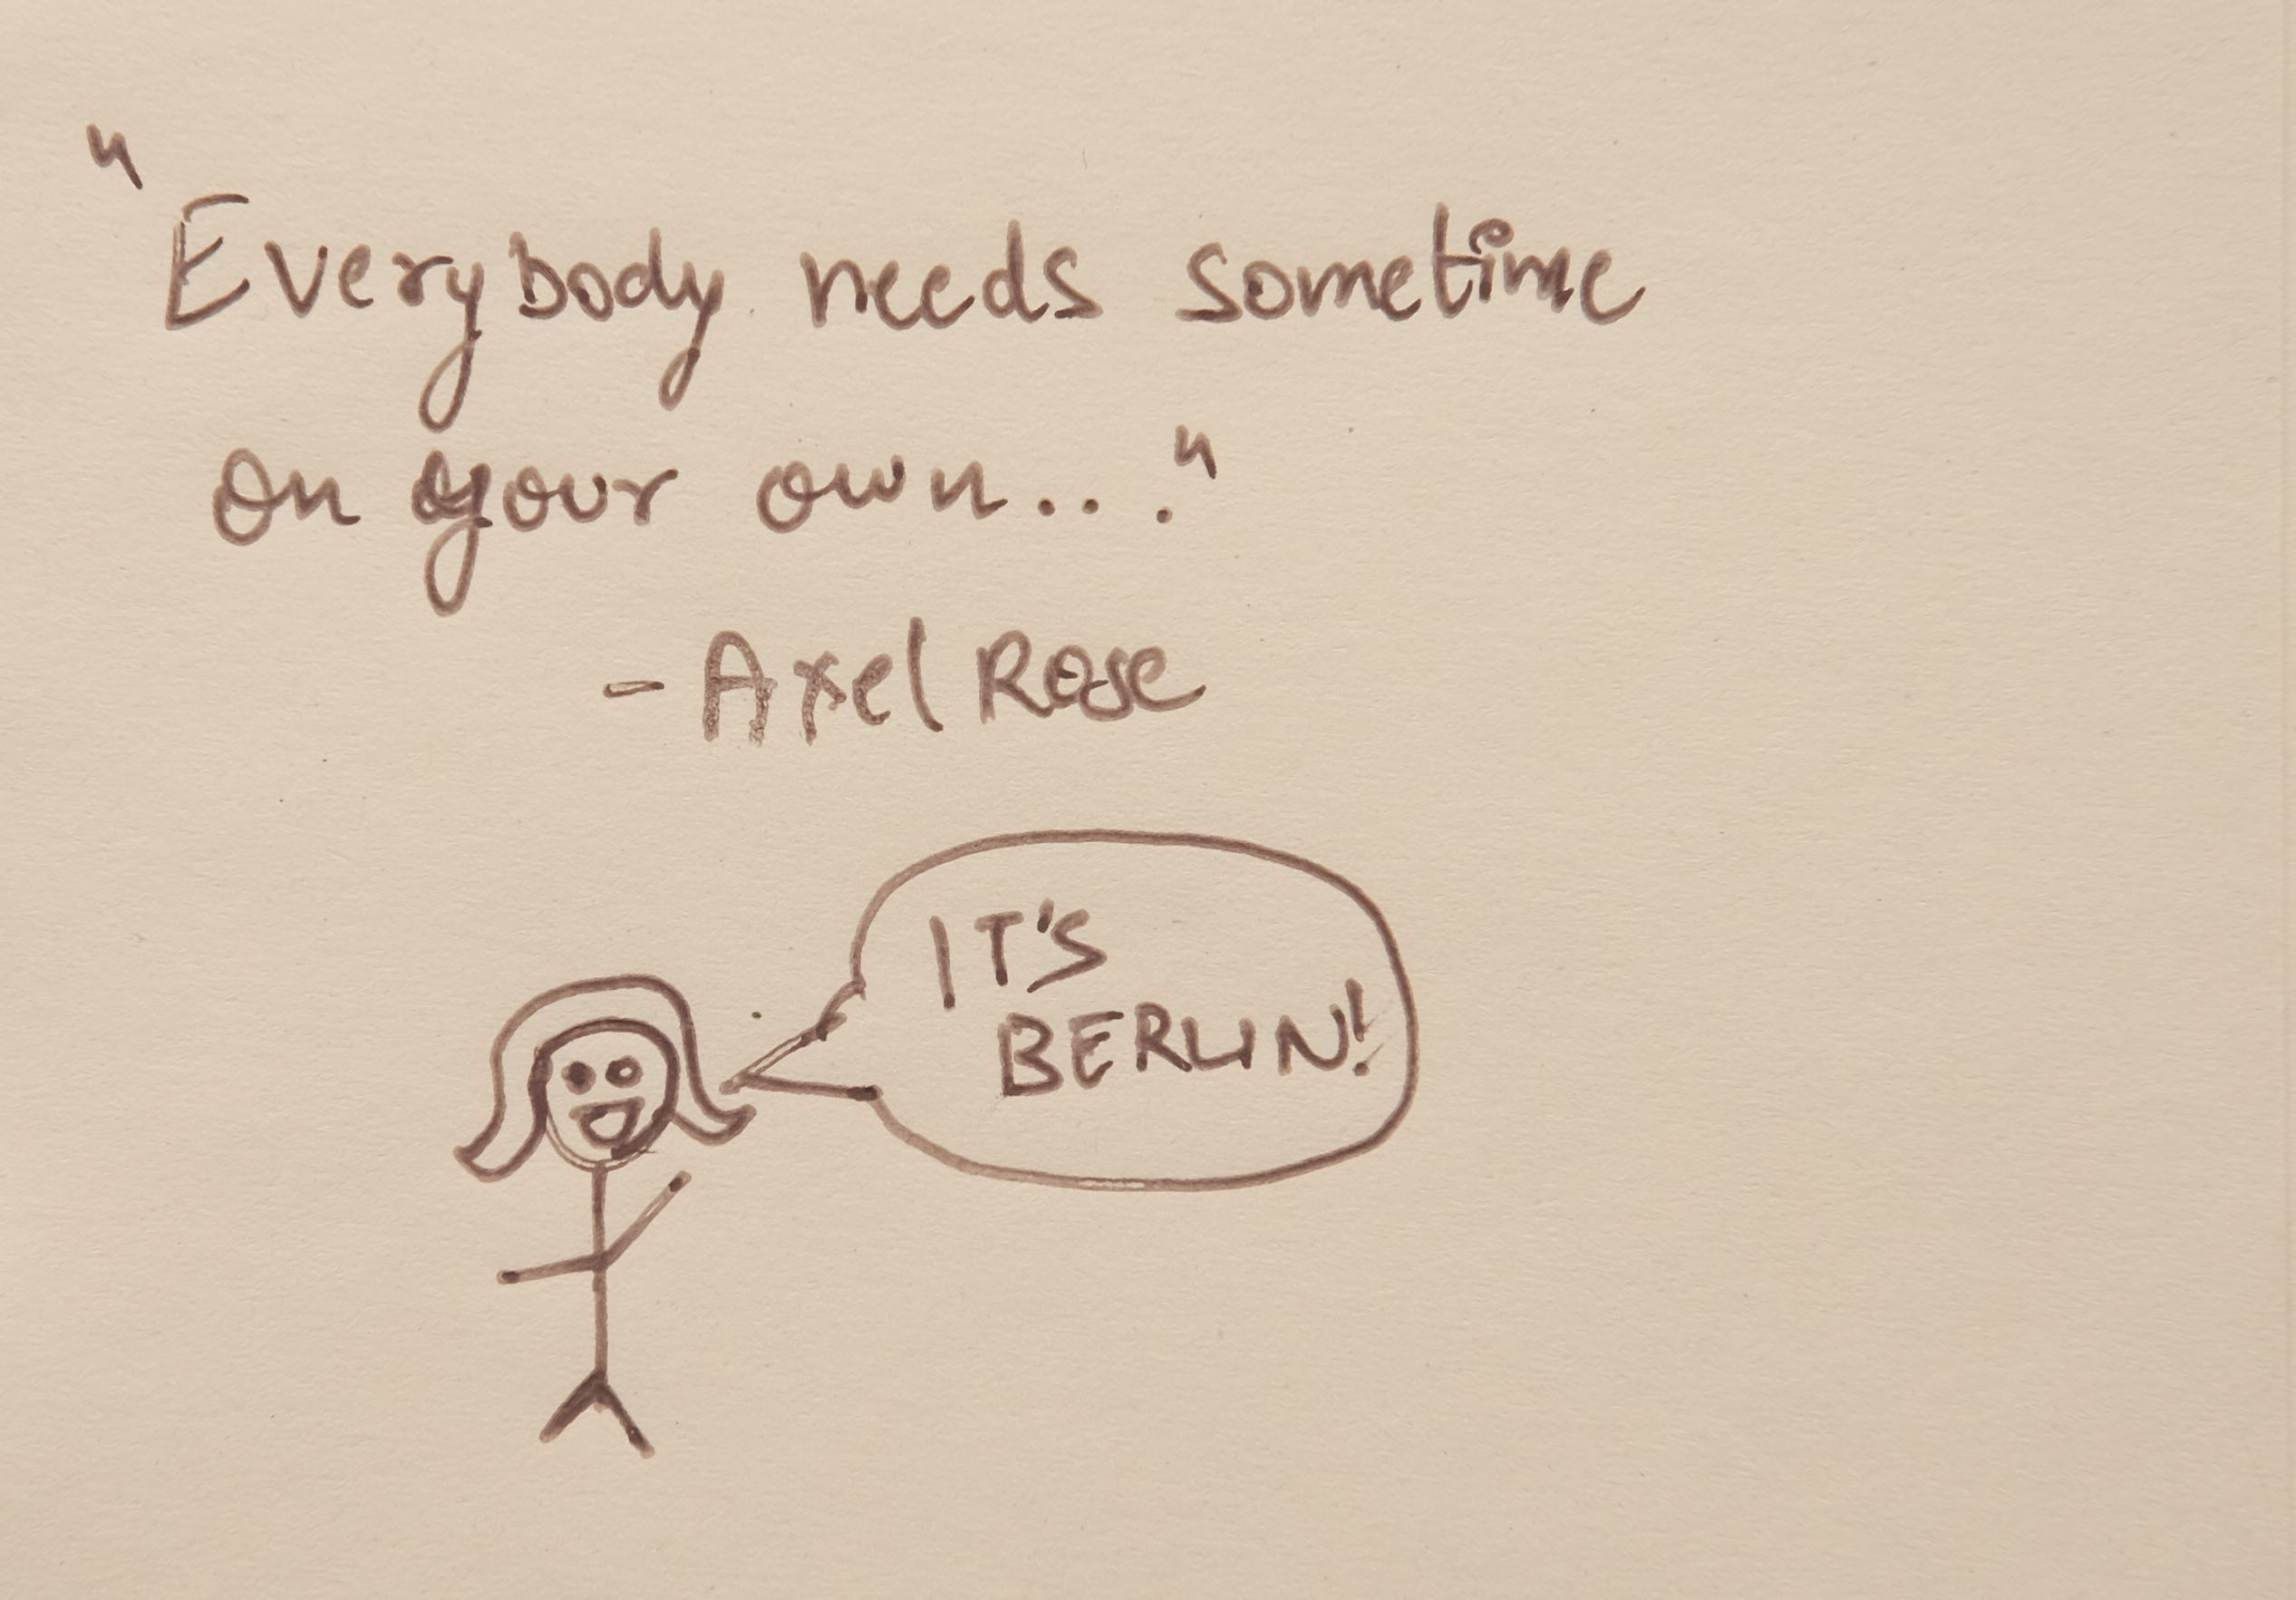 "Everybody needs sometime
on your own..."
- Axel Rose
IT'S
BERLIN!